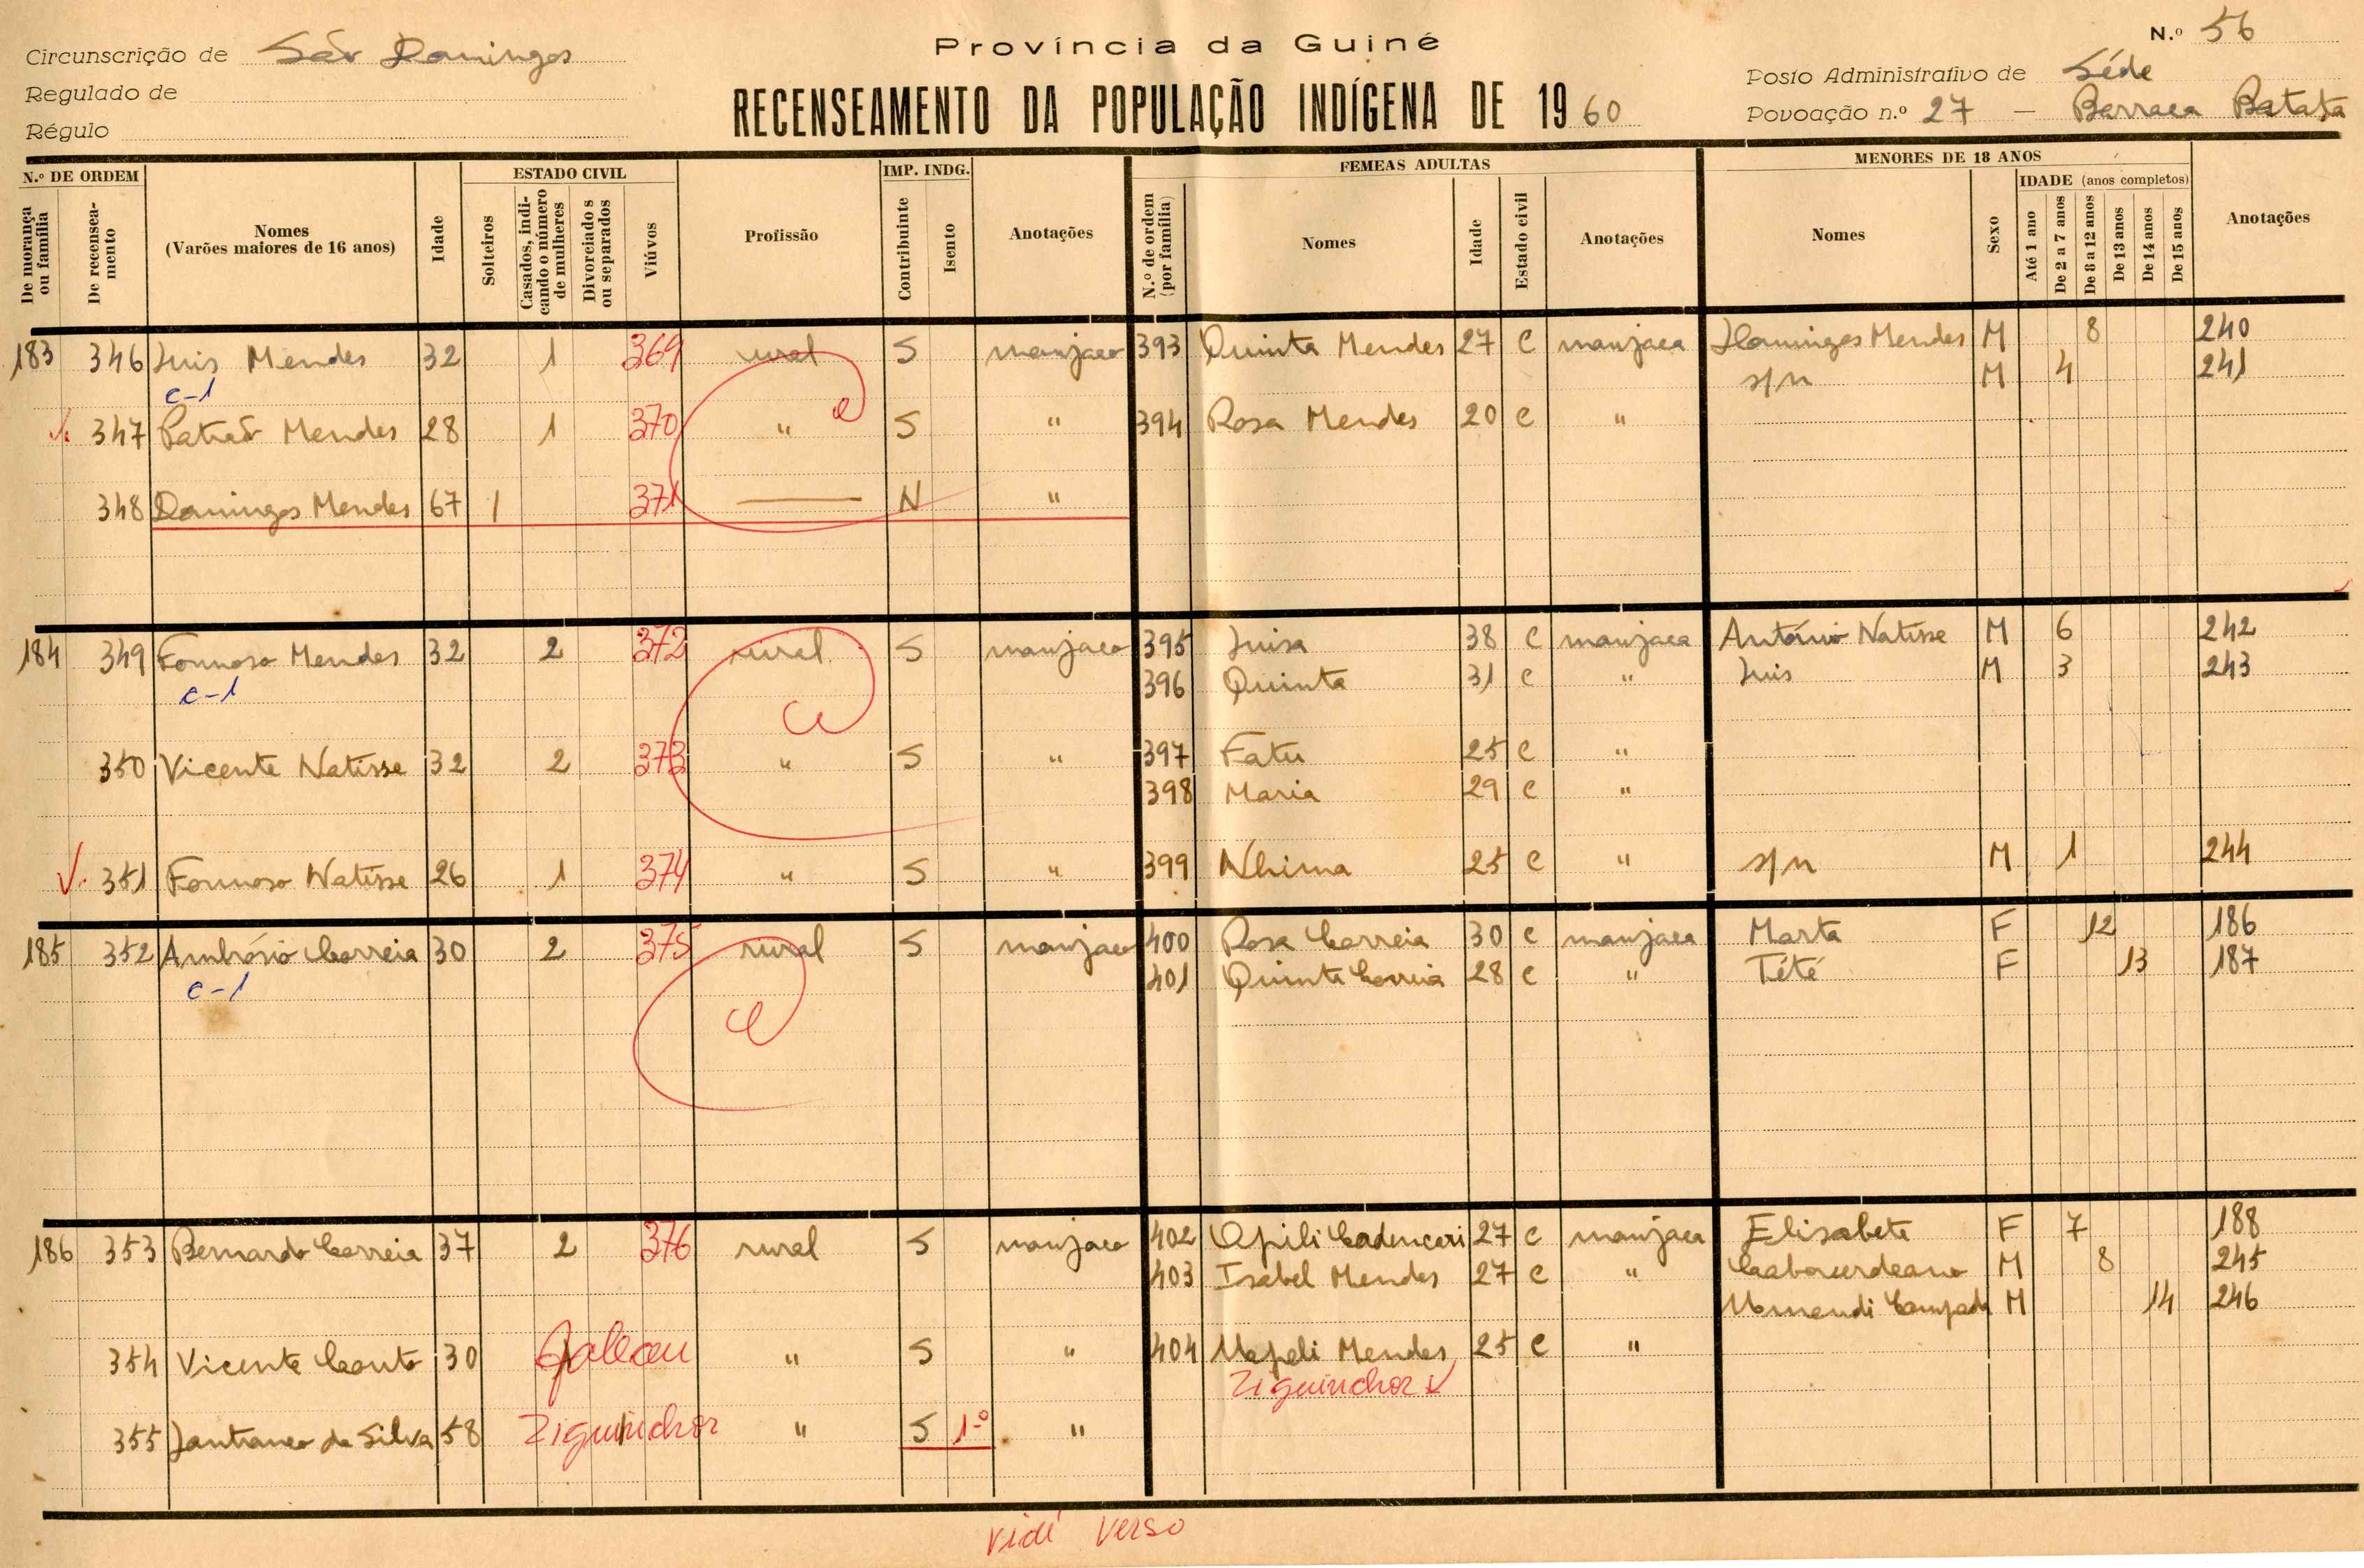 Província da Guiné
N.º 56
Circunscrição de São Domingos
Regulado de
Régulo
RECENSEAMENTO DA POPULAÇÃO INDÍGENA DE 1960
Posto Administrativo de Séde
Povoação n.º 27 — Barraca Batata
N.º DE ORDEM
De morança ou família
De recenseamento
Nomes
(Varões maiores de 16 anos)
Idade
ESTADO CIVIL
Solteiros
Casados, indicando o número de mulheres
Divorciados ou separados
Viúvos
Profissão
IMP. INDG.
Contribuinte
Isento
Anotações
FEMEAS ADULTAS
N.º de ordem (por família)
Nomes
Idade
Estado civil
Anotações
MENORES DE 18 ANOS
Nomes
Sexo
IDADE (anos completos)
Até 1 ano
De 2 a 7 anos
De 8 a 12 anos
De 13 anos
De 14 anos
De 15 anos
Anotações
183 346 Luis Mendes 32 1 369 rural S manjaco 393 Quinta Mendes 27 C manjaca Domingos Mendes M 8 240
c-1 s/n M 4 241
347 Patrão Mendes 28 1 370 " S " 394 Rosa Mendes 20 C "
348 Domingos Mendes 67 1 371 — N "
184 349 Formoso Mendes 32 2 372 rural S manjaco 395 Luisa 38 C manjaca António Natisse M 6 242
c-1 396 Quinta 31 C " Luis M 3 243
350 Vicente Natisse 32 2 373 " S " 397 Fatu 25 C "
398 Maria 29 C "
351 Formoso Natisse 26 1 374 " S " 399 Nhima 25 C " s/n M 1 244
185 352 Ambrósio Correia 30 2 375 rural S manjaco 400 Rosa Correia 30 C manjaca Marta F 12 186
c-1 401 Quinta Correia 28 C " Tété F 13 187
186 353 Bernardo Correia 37 2 376 rural S manjaco 402 Apili 27 C manjaca Elisabete F 7 188
403 Isabel Mendes 27 C " Caboverdeano M 8 245
M 14 246
354 Vicente Couto 30 " S " 404 Mendes 25 C "
Ziguinchor
355 da Silva 58 Ziguinchor " S 1º "
Vidé Verso